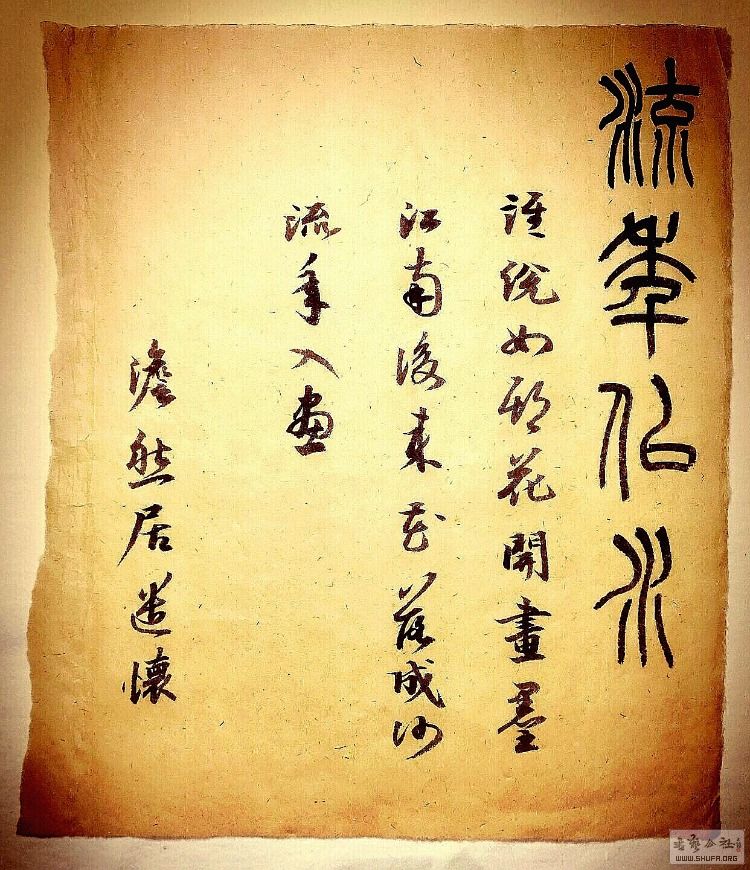 流年似水
誰說如那花開畫墨
江南後來花落成沙
流年入畫
澹然居遣懷
书艺公社
WWW.SHUFA.ORG